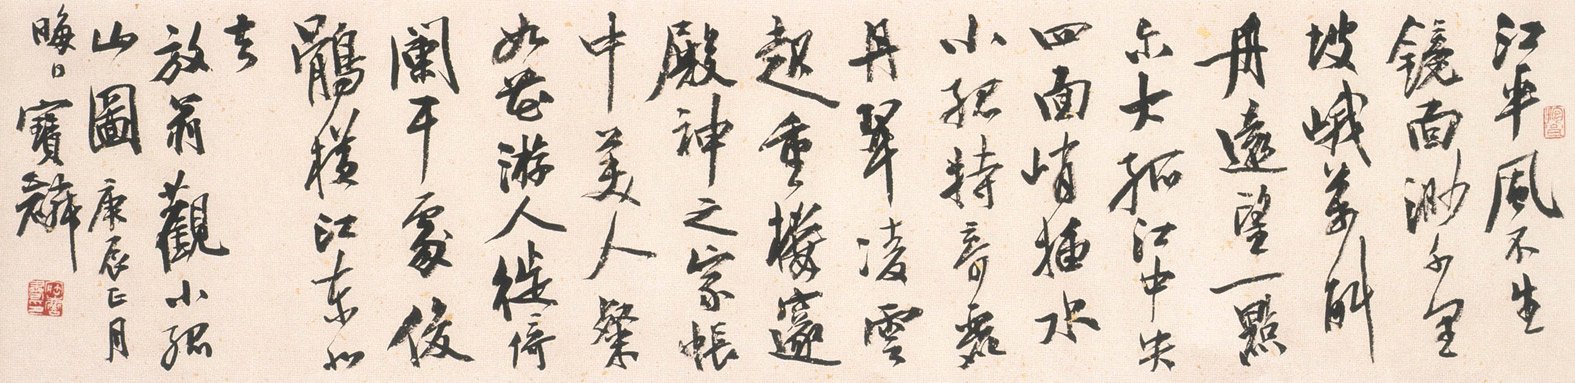 江平風不生
鏡面渺千里
坡峨萬斛
舟遠望一點
尔大孤江中央
四面峭插水
小孤特奇麗
丹翠凌雲
起重樓邃
殿神之家帳
中美人粲
如花游人徙倚
闌干處俊
鶻橫江東北
去
放翁觀小孤
山圖 庚辰正月
晦日寶麟